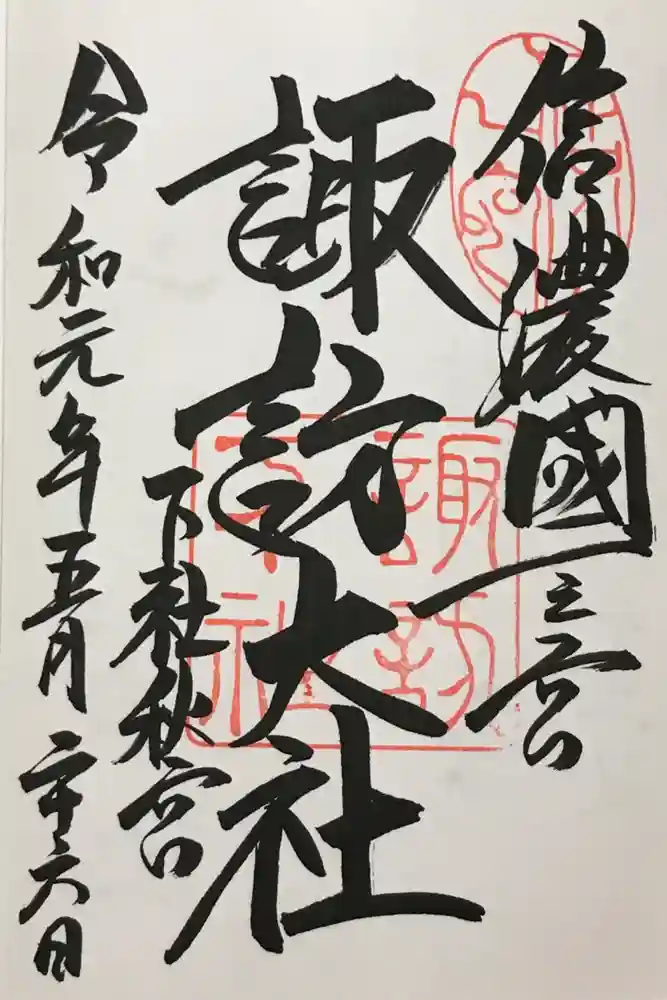 信濃國一之宮
諏訪大社
下社秋宮
令和元年五月二十六日
諏訪
社